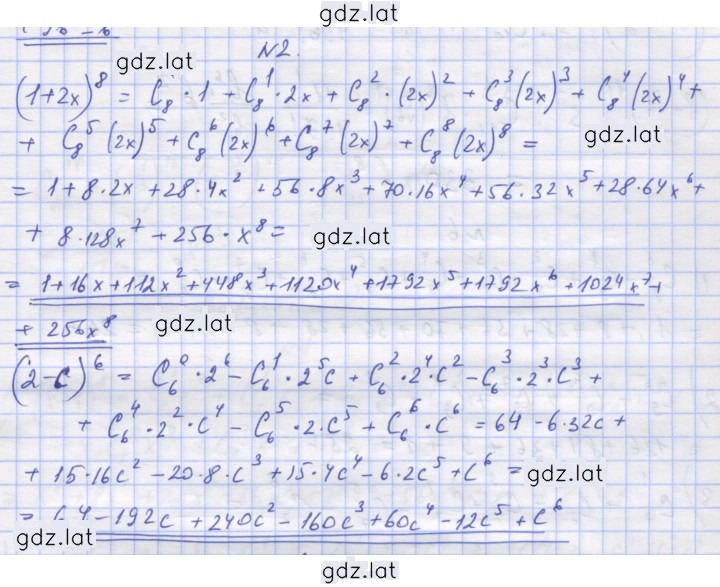 gdz.lat
gdz.lat
N2.
(1+2x)^8 = C_8 · 1 + C_8^1 · 2x + C_8^2 · (2x)^2 + C_8^3 (2x)^3 + C_8^4 (2x)^4 +
+ C_8^5 (2x)^5 + C_8^6 (2x)^6 + C_8^7 (2x)^7 + C_8^8 (2x)^8 =
gdz.lat
= 1 + 8·2x + 28·4x^2 + 56·8x^3 + 70·16x^4 + 56·32x^5 + 28·64x^6 +
+ 8·128x^7 + 256·x^8 =
gdz.lat
= 1+16x+112x^2+448x^3+1120x^4+1792x^5+1792x^6+1024x^7+
+ 256x^8
gdz.lat
(2-c)^6 = C_6^0 · 2^6 - C_6^1 · 2^5 c + C_6^2 · 2^4 · c^2 - C_6^3 · 2^3 · c^3 +
+ C_6^4 · 2^2 · c^4 - C_6^5 · 2 · c^5 + C_6^6 · c^6 = 64 - 6·32c +
+ 15·16c^2 - 20·8·c^3 + 15·4c^4 - 6·2c^5 + c^6 =
gdz.lat
= 64 - 192c + 240c^2 - 160c^3 + 60c^4 - 12c^5 + c^6
gdz.lat
gdz.lat